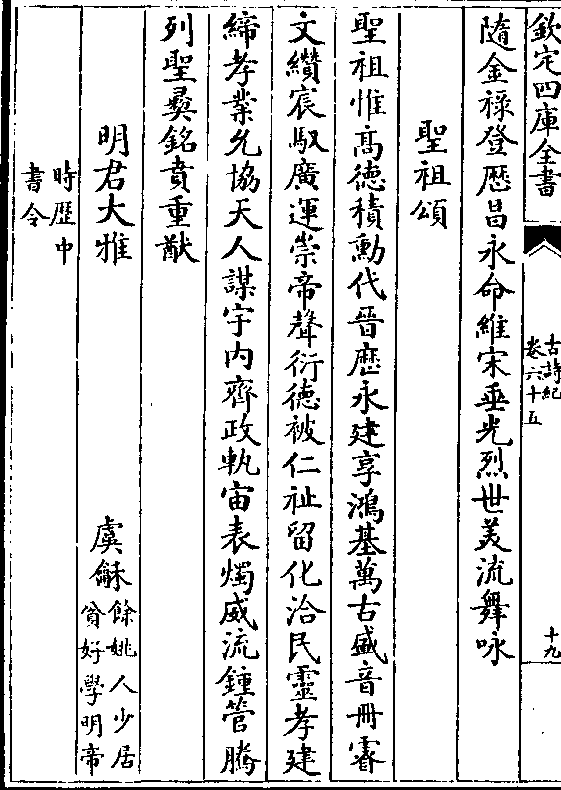 欽定四庫全書
古詩紀
卷六十五
十九
隨金祿登厯昌永命維宋垂光烈世美流舞咏
聖祖頌
聖祖惟高德積勳代晉厯永建享鴻基萬古盛音冊睿
文纘宸馭廣運崇帝聲衍德被仁祉留化洽民靈孝建
締孝業允協天人謀宇内齊政軌宙表燭威流鍾管騰
列聖彛銘賁重猷
明君大雅
虞龢餘姚人少居
貧好學明帝
時歴中
書令